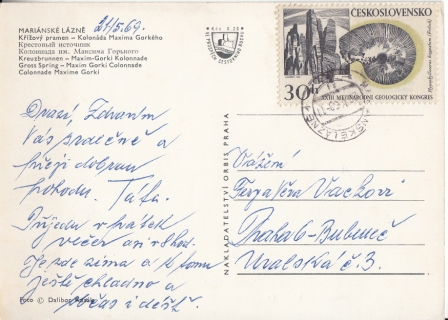 MARIÁNSKÉ LÁZNĚ
Křížový pramen – Kolonáda Maxima Gorkého
Крестовый источник
Колоннада им. Максима Горького
Kreuzbrunnen – Maxim-Gorki Kolonnade
Gross Spring – Maxim Gorki Colonnade
Colonnade Maxime Gorki
21/5.69.
Drazí, Zdravím
Vás srdečně a
přeji dobrou
pohodu. Táta.
Přijedu v pátek
večer asi v 8 hod.
Je zde zima a k tomu
ještě chladno a
počas i déšť.
Foto © Dalibor
NAKLADATELSTVÍ ORBIS PRAHA
ČESKOSLOVENSKO
30h
XXIII MEZINÁRODNÍ GEOLOGICKÝ KONGRES
Vážení
Vackovi
Praha 6 - Bubeneč
Uralská č. 3.